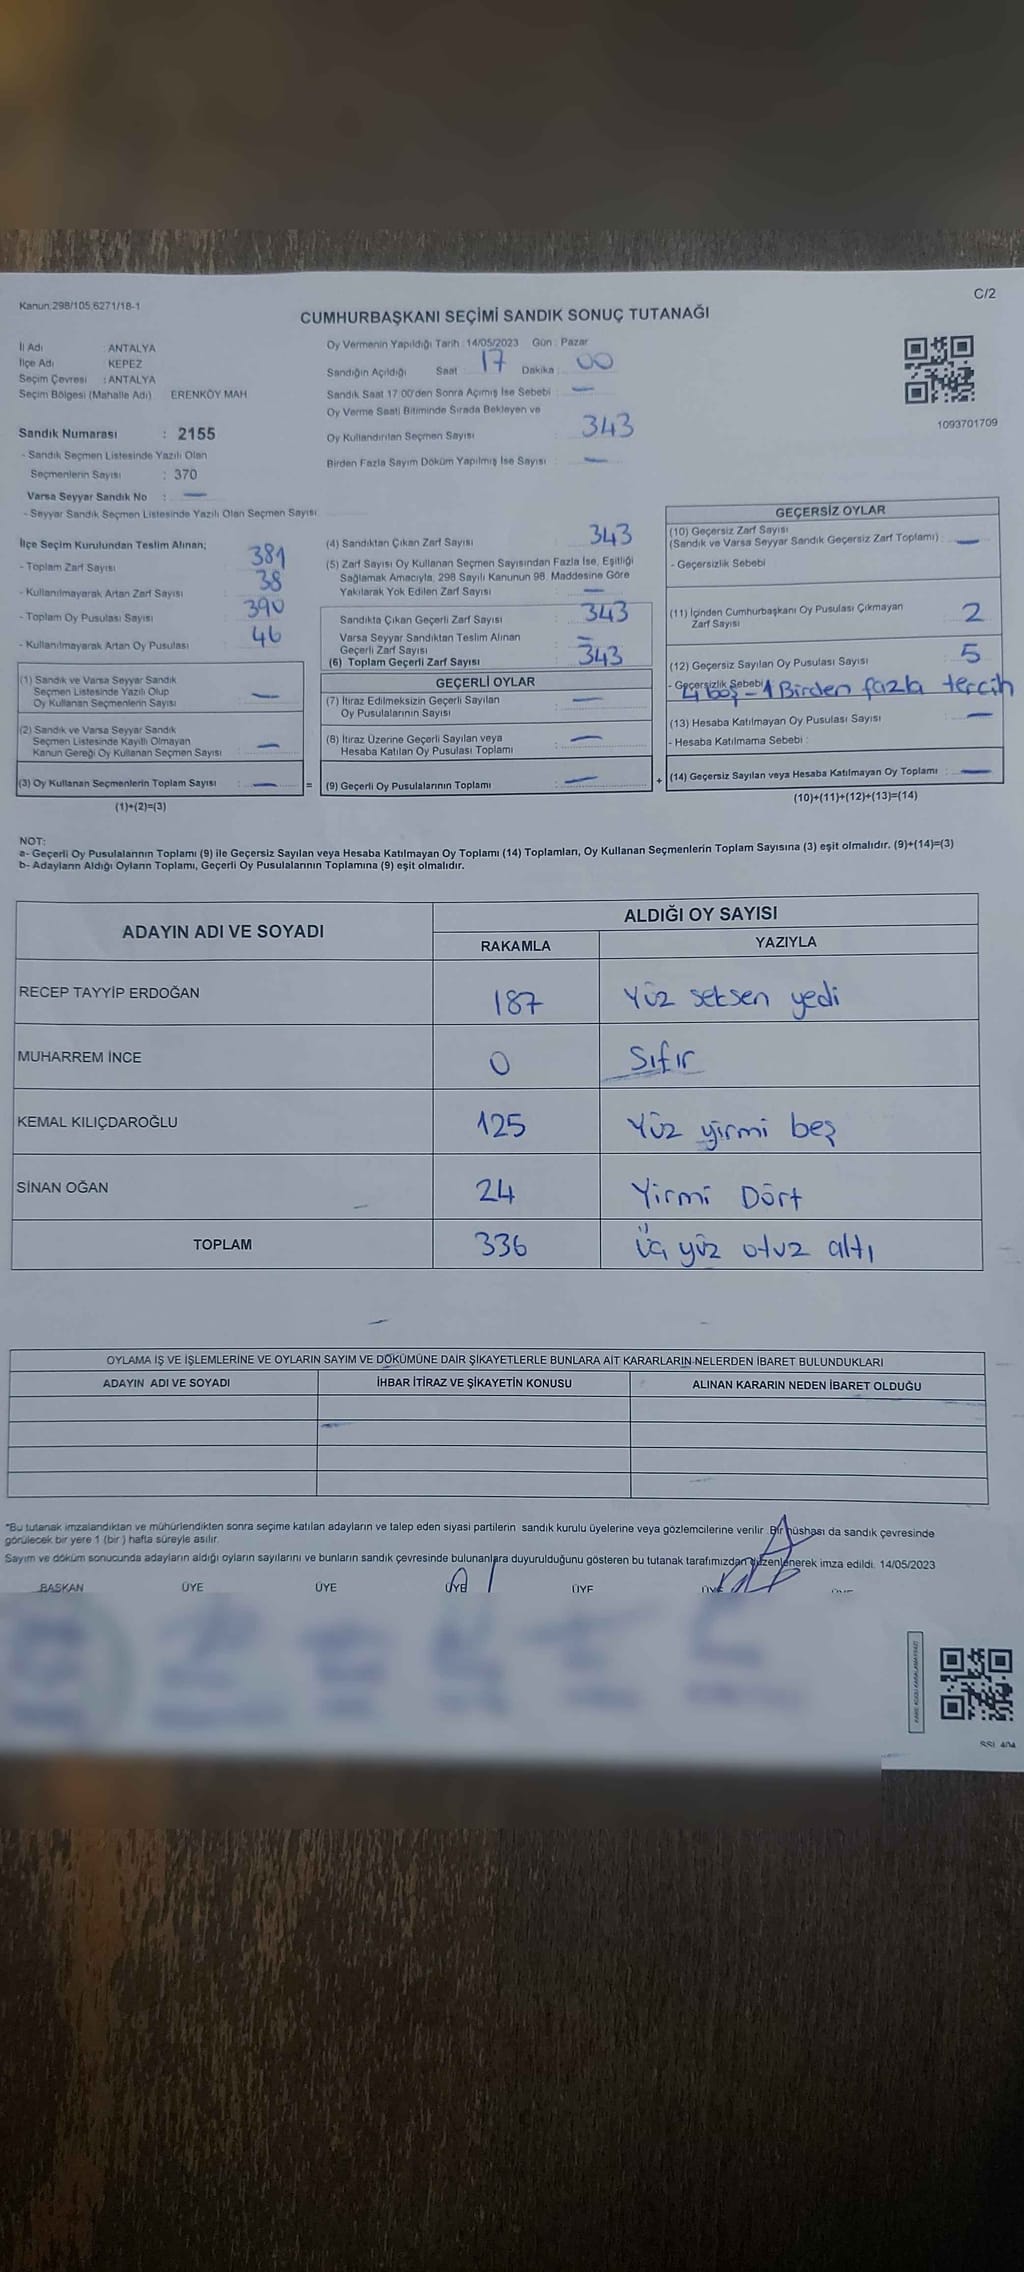 Kanun 298/105,6271/18-1
C/2
CUMHURBAŞKANI SEÇİMİ SANDIK SONUÇ TUTANAĞI
İl Adı : ANTALYA
İlçe Adı : KEPEZ
Seçim Çevresi : ANTALYA
Seçim Bölgesi (Mahalle Adı) ERENKÖY MAH
Sandık Numarası : 2155
- Sandık Seçmen Listesinde Yazılı Olan
Seçmenlerin Sayısı : 370
Varsa Seyyar Sandık No : —
- Seyyar Sandık Seçmen Listesinde Yazılı Olan Seçmen Sayısı
Oy Vermenin Yapıldığı Tarih : 14/05/2023 Gün : Pazar
Sandığın Açıldığı Saat 17 Dakika : 00
Sandık Saat 17:00'den Sonra Açımış İse Sebebi : —
Oy Verme Saati Bitiminde Sırada Bekleyen ve
Oy Kullandırılan Seçmen Sayısı : 343
Birden Fazla Sayım Döküm Yapılmış İse Sayısı : —
1093701709
İlçe Seçim Kurulundan Teslim Alınan;
- Toplam Zarf Sayısı 381
- Kullanılmayarak Artan Zarf Sayısı 38
- Toplam Oy Pusulası Sayısı 390
- Kullanılmayarak Artan Oy Pusulası 46
(1) Sandık ve Varsa Seyyar Sandık
Seçmen Listesinde Yazılı Olup
Oy Kullanan Seçmenlerin Sayısı : —
(2) Sandık ve Varsa Seyyar Sandık
Seçmen Listesinde Kayıtlı Olmayan
Kanun Gereği Oy Kullanan Seçmen Sayısı : —
(3) Oy Kullanan Seçmenlerin Toplam Sayısı : — =
(1)+(2)=(3)
(4) Sandıktan Çıkan Zarf Sayısı : 343
(5) Zarf Sayısı Oy Kullanan Seçmen Sayısından Fazla İse, Eşitliği
Sağlamak Amacıyla, 298 Sayılı Kanunun 98. Maddesine Göre
Yakılarak Yok Edilen Zarf Sayısı : —
Sandıkta Çıkan Geçerli Zarf Sayısı : 343
Varsa Seyyar Sandıktan Teslim Alınan
Geçerli Zarf Sayısı : —
(6) Toplam Geçerli Zarf Sayısı : 343
GEÇERLİ OYLAR
(7) İtiraz Edilmeksizin Geçerli Sayılan
Oy Pusulalarının Sayısı : —
(8) İtiraz Üzerine Geçerli Sayılan veya
Hesaba Katılan Oy Pusulası Toplamı : —
(9) Geçerli Oy Pusulalarının Toplamı : — +
GEÇERSİZ OYLAR
(10) Geçersiz Zarf Sayısı
(Sandık ve Varsa Seyyar Sandık Geçersiz Zarf Toplamı) : —
- Geçersizlik Sebebi
(11) İçinden Cumhurbaşkanı Oy Pusulası Çıkmayan
Zarf Sayısı 2
(12) Geçersiz Sayılan Oy Pusulası Sayısı 5
- Geçersizlik Sebebi 4 boş - 1 Birden fazla tercih
(13) Hesaba Katılmayan Oy Pusulası Sayısı : —
- Hesaba Katılmama Sebebi :
(14) Geçersiz Sayılan veya Hesaba Katılmayan Oy Toplamı : —
(10)+(11)+(12)+(13)=(14)
NOT:
a- Geçerli Oy Pusulalarının Toplamı (9) ile Geçersiz Sayılan veya Hesaba Katılmayan Oy Toplamı (14) Toplamları, Oy Kullanan Seçmenlerin Toplam Sayısına (3) eşit olmalıdır. (9)+(14)=(3)
b- Adayların Aldığı Oyların Toplamı, Geçerli Oy Pusulalarının Toplamına (9) eşit olmalıdır.
ADAYIN ADI VE SOYADI ALDIĞI OY SAYISI
RAKAMLA YAZIYLA
RECEP TAYYİP ERDOĞAN 187 Yüz seksen yedi
MUHARREM İNCE 0 Sıfır
KEMAL KILIÇDAROĞLU 125 Yüz yirmi beş
SİNAN OĞAN 24 Yirmi Dört
TOPLAM 336 Üç yüz otuz altı
OYLAMA İŞ VE İŞLEMLERİNE VE OYLARIN SAYIM VE DÖKÜMÜNE DAİR ŞİKAYETLERLE BUNLARA AİT KARARLARIN NELERDEN İBARET BULUNDUKLARI
ADAYIN ADI VE SOYADI İHBAR İTİRAZ VE ŞİKAYETİN KONUSU ALINAN KARARIN NEDEN İBARET OLDUĞU
*Bu tutanak imzalandıktan ve mühürlendikten sonra seçime katılan adayların ve talep eden siyasi partilerin sandık kurulu üyelerine veya gözlemcilerine verilir. Bir nüshası da sandık çevresinde
görülecek bir yere 1 (bir ) hafta süreyle asılır.
Sayım ve döküm sonucunda adayların aldığı oyların sayılarını ve bunların sandık çevresinde bulunanlara duyurulduğunu gösteren bu tutanak tarafımızdan düzenlenerek imza edildi. 14/05/2023
BAŞKAN ÜYE ÜYE ÜYE ÜYE ÜYE